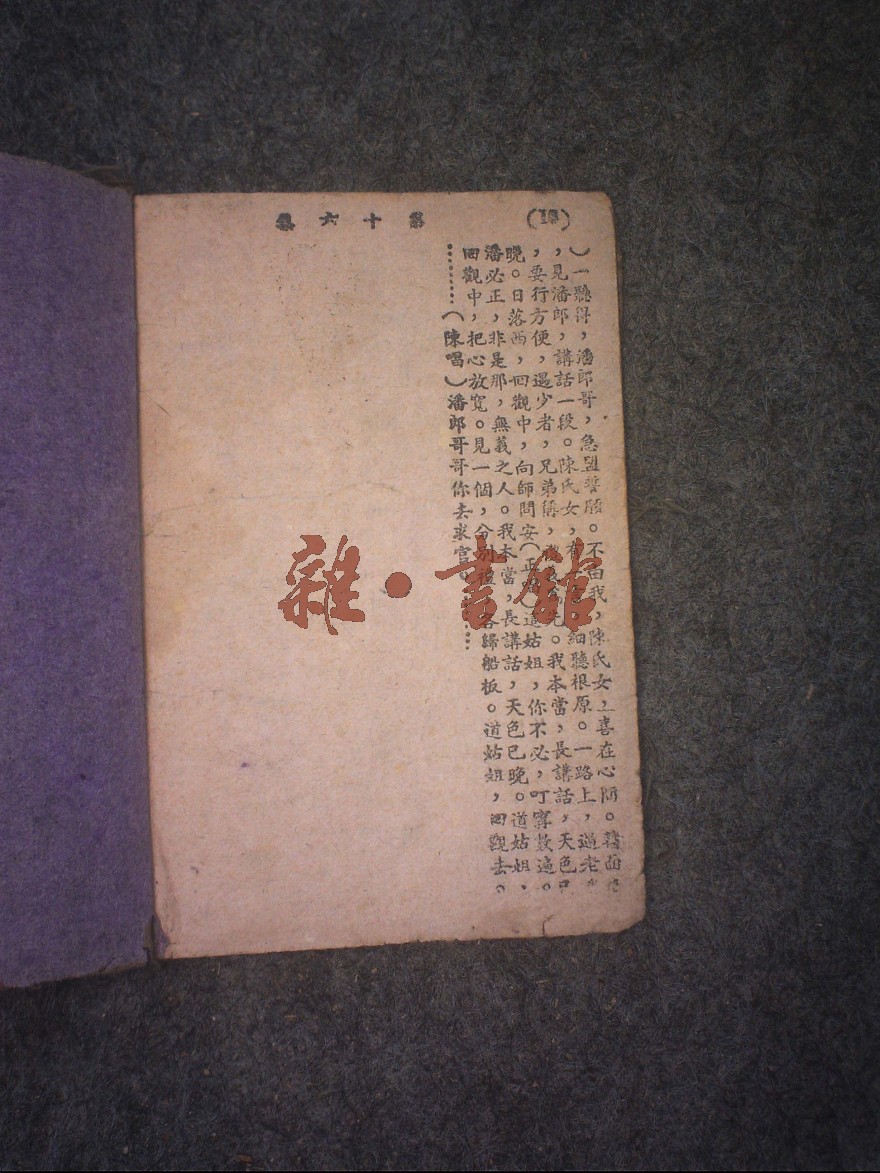 第十六集
）一聽得，潘郎哥，急盟誓願。不由我，陳氏女，喜在心間。
，見潘郎，講話一段。陳氏女，有 細聽根原。一路上，過老
，要行方便，遇少者，兄弟稱， 我本當，長講話，天色已
晚。日落西，回觀中，向師問安（正唱）道姑姐，你不必，叮寧數遍。
潘必正，非是那，無義之人。我本當，長講話，天色已晚。道姑姐，
回觀中，把心放寬。見一個，分別禮，各歸船板。道姑姐，回觀去。
………（陳唱）潘郎哥哥你去求官
雜·書館